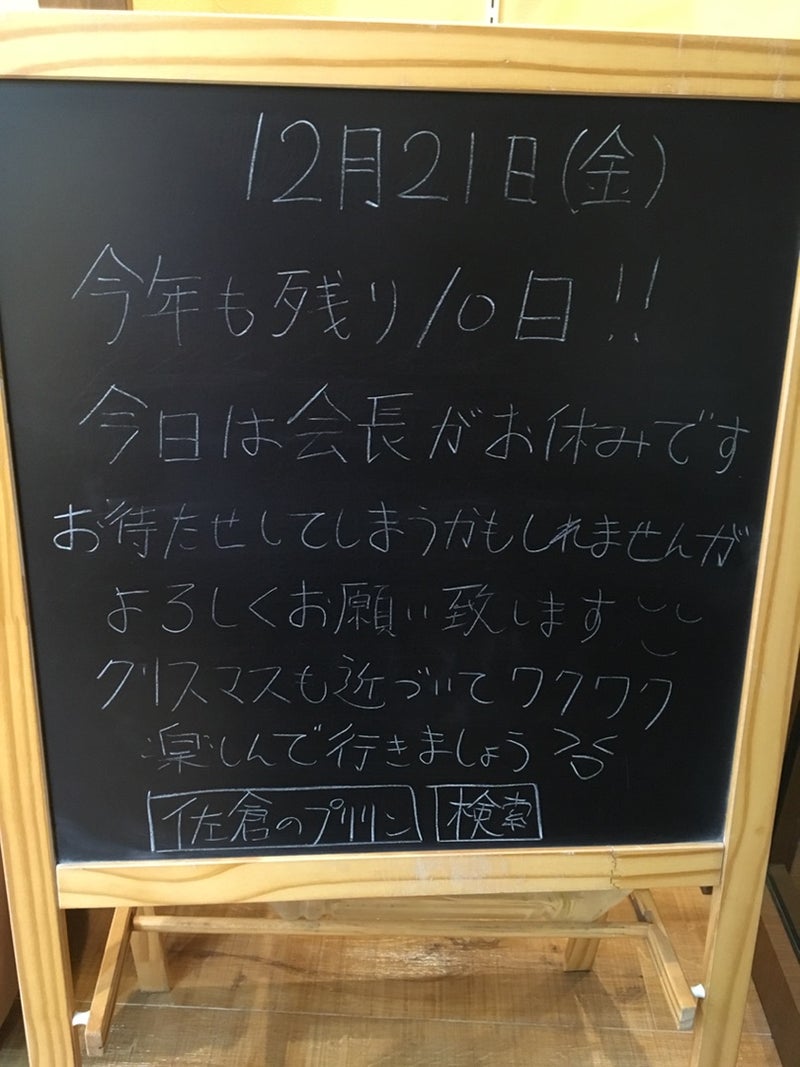 12月21日(金)
今年も残り10日!!
今日は会長がお休みです
お待たせしてしまうかもしれませんが
よろしくお願い致します
クリスマスも近づいてワクワク
楽しんで行きましょう
佐倉のプリリン 検索